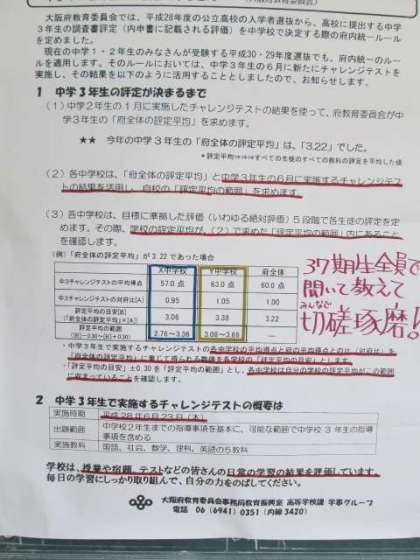 大阪府教育委員会では、平成28年度の公立高校の入学者選抜から、高校に提出する中学
3年生の調査書評定（内申書に記載される評価）を中学校で決定する際の府内統一ルール
を定めました。
現在の中学1・2年生のみなさんが受験する平成30・29年度選抜でも、府内統一のルー
ルを適用します。そのルールにおいては、中学3年生の6月に新たにチャレンジテストを
実施し、その結果を以下のように活用することとしましたので、お知らせします。
1 中学3年生の評定が決まるまで
（1）中学2年生の1月に実施したチャレンジテストの結果を使って、府教育委員会が中
学3年生の「府全体の評定平均」を求めます。
★★ 今年の中学3年生の「府全体の評定平均」は、「3.22」でした。
（2）各中学校は、「府全体の評定平均」と中学3年生の6月に実施するチャレンジテス
トの結果を活用し、自校の「評定平均の範囲」を求めます。
（3）各中学校は、目標に準拠した評価（いわゆる絶対評価）5段階で各生徒の評定を定
めます。その際、学校の評定平均が、（2）で求めた「評定平均の範囲」内にあること
を確認します。
（例）「府全体の評定平均」が3.22であった場合
X中学校 Y中学校 府全体
中3チャレンジテストの平均得点 57.0点 63.0点 60.0点
中3チャレンジテストの対府比[A] 0.95 1.05 1.00
評定平均の目安[B]
（「府全体の評定平均」×[A]） 3.06 3.38 3.22
評定平均の範囲
（[B]－0.30～[B]＋0.30） 2.76～3.36 3.08～3.68 ―
37期生全員で
聞いて教えて
みんなで
切磋琢磨!
・「評定平均の目安」±0.30を「評定平均の範囲」とし、各中学校は自分の学校の評定平均がこの範囲
に収まっていることを確認します。
2 中学3年生で実施するチャレンジテストの概要は
実施時期 平成28年6月23日（木）
出題範囲 中学校2年生までの指導事項を基本に、可能な範囲で中学校3年生の指導
事項を含める
実施教科 国語、社会、数学、理科、英語の5教科
学校は、授業や宿題、テストなどの皆さんの日常の学習の結果を評価しています。
毎日の学習にしっかり取り組んで、自分の力をのばしてください。
大阪府教育委員会事務局教育振興室 高等学校課 学事グループ
電話 06（6941）0351（内線3420）